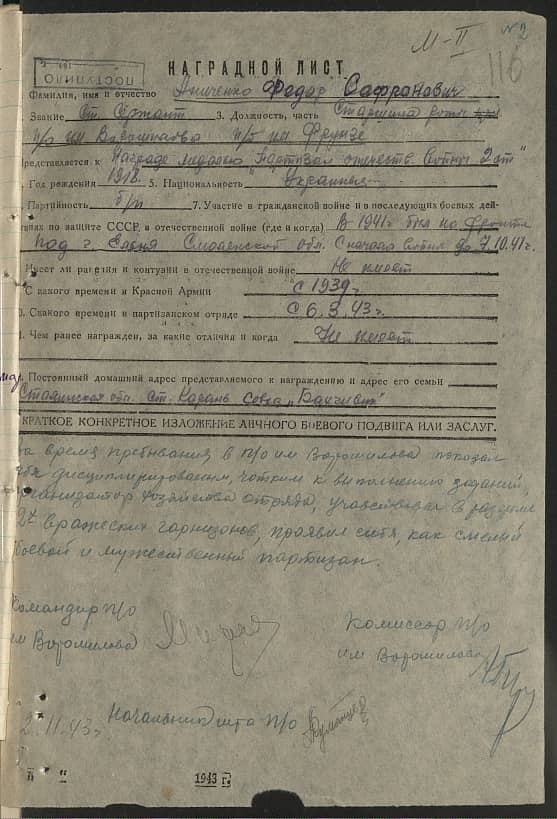 №2
М-II
116
ПОСТУПИЛО
НАГРАДНОЙ ЛИСТ
Фамилия, имя и отчество Аниченко Федор Сафронович
Звание Ст. Сержант 3. Должность, часть Старшина роты
п/о им Ворошилова п/б им Фрунзе
Представляется к Награде медалью "Партизан отечеств. войны 2 ст"
Год рождения 1918. 5. Национальность Украинец
Партийность б/п 7. Участие в гражданской войне и в последующих боевых дей-
ствиях по защите СССР, в отечественной войне (где и когда) В 1941 г. был на фронте
под г. Ельня Смоленской обл. С начала войны до 7.10.41 г.
Имеет ли ранения и контузии в отечественной войне Не имеет
С какого времени в Красной Армии с 1939 г
С какого времени в партизанском отряде с 6.3.43 г.
Чем ранее награжден, за какие отличия и когда Не имеет
Постоянный домашний адрес представляемого к награждению и адрес его семьи
Сталинская обл. ст. Карань
КРАТКОЕ КОНКРЕТНОЕ ИЗЛОЖЕНИЕ ЛИЧНОГО БОЕВОГО ПОДВИГА ИЛИ ЗАСЛУГ.
За время пребывания в п/о им Ворошилова показал
себя дисциплинированым, чотким к выполнению заданий,
отряда, участвовал в разгроме
2х вражеских гарнизонов, проявил себя, как смелый
боевой и мужественный партизан.
Командир п/о
им Ворошилова
Комиссар п/о
им. Ворошилова
2.11.43 г. Начальник шта п/о
" " 1943 г.